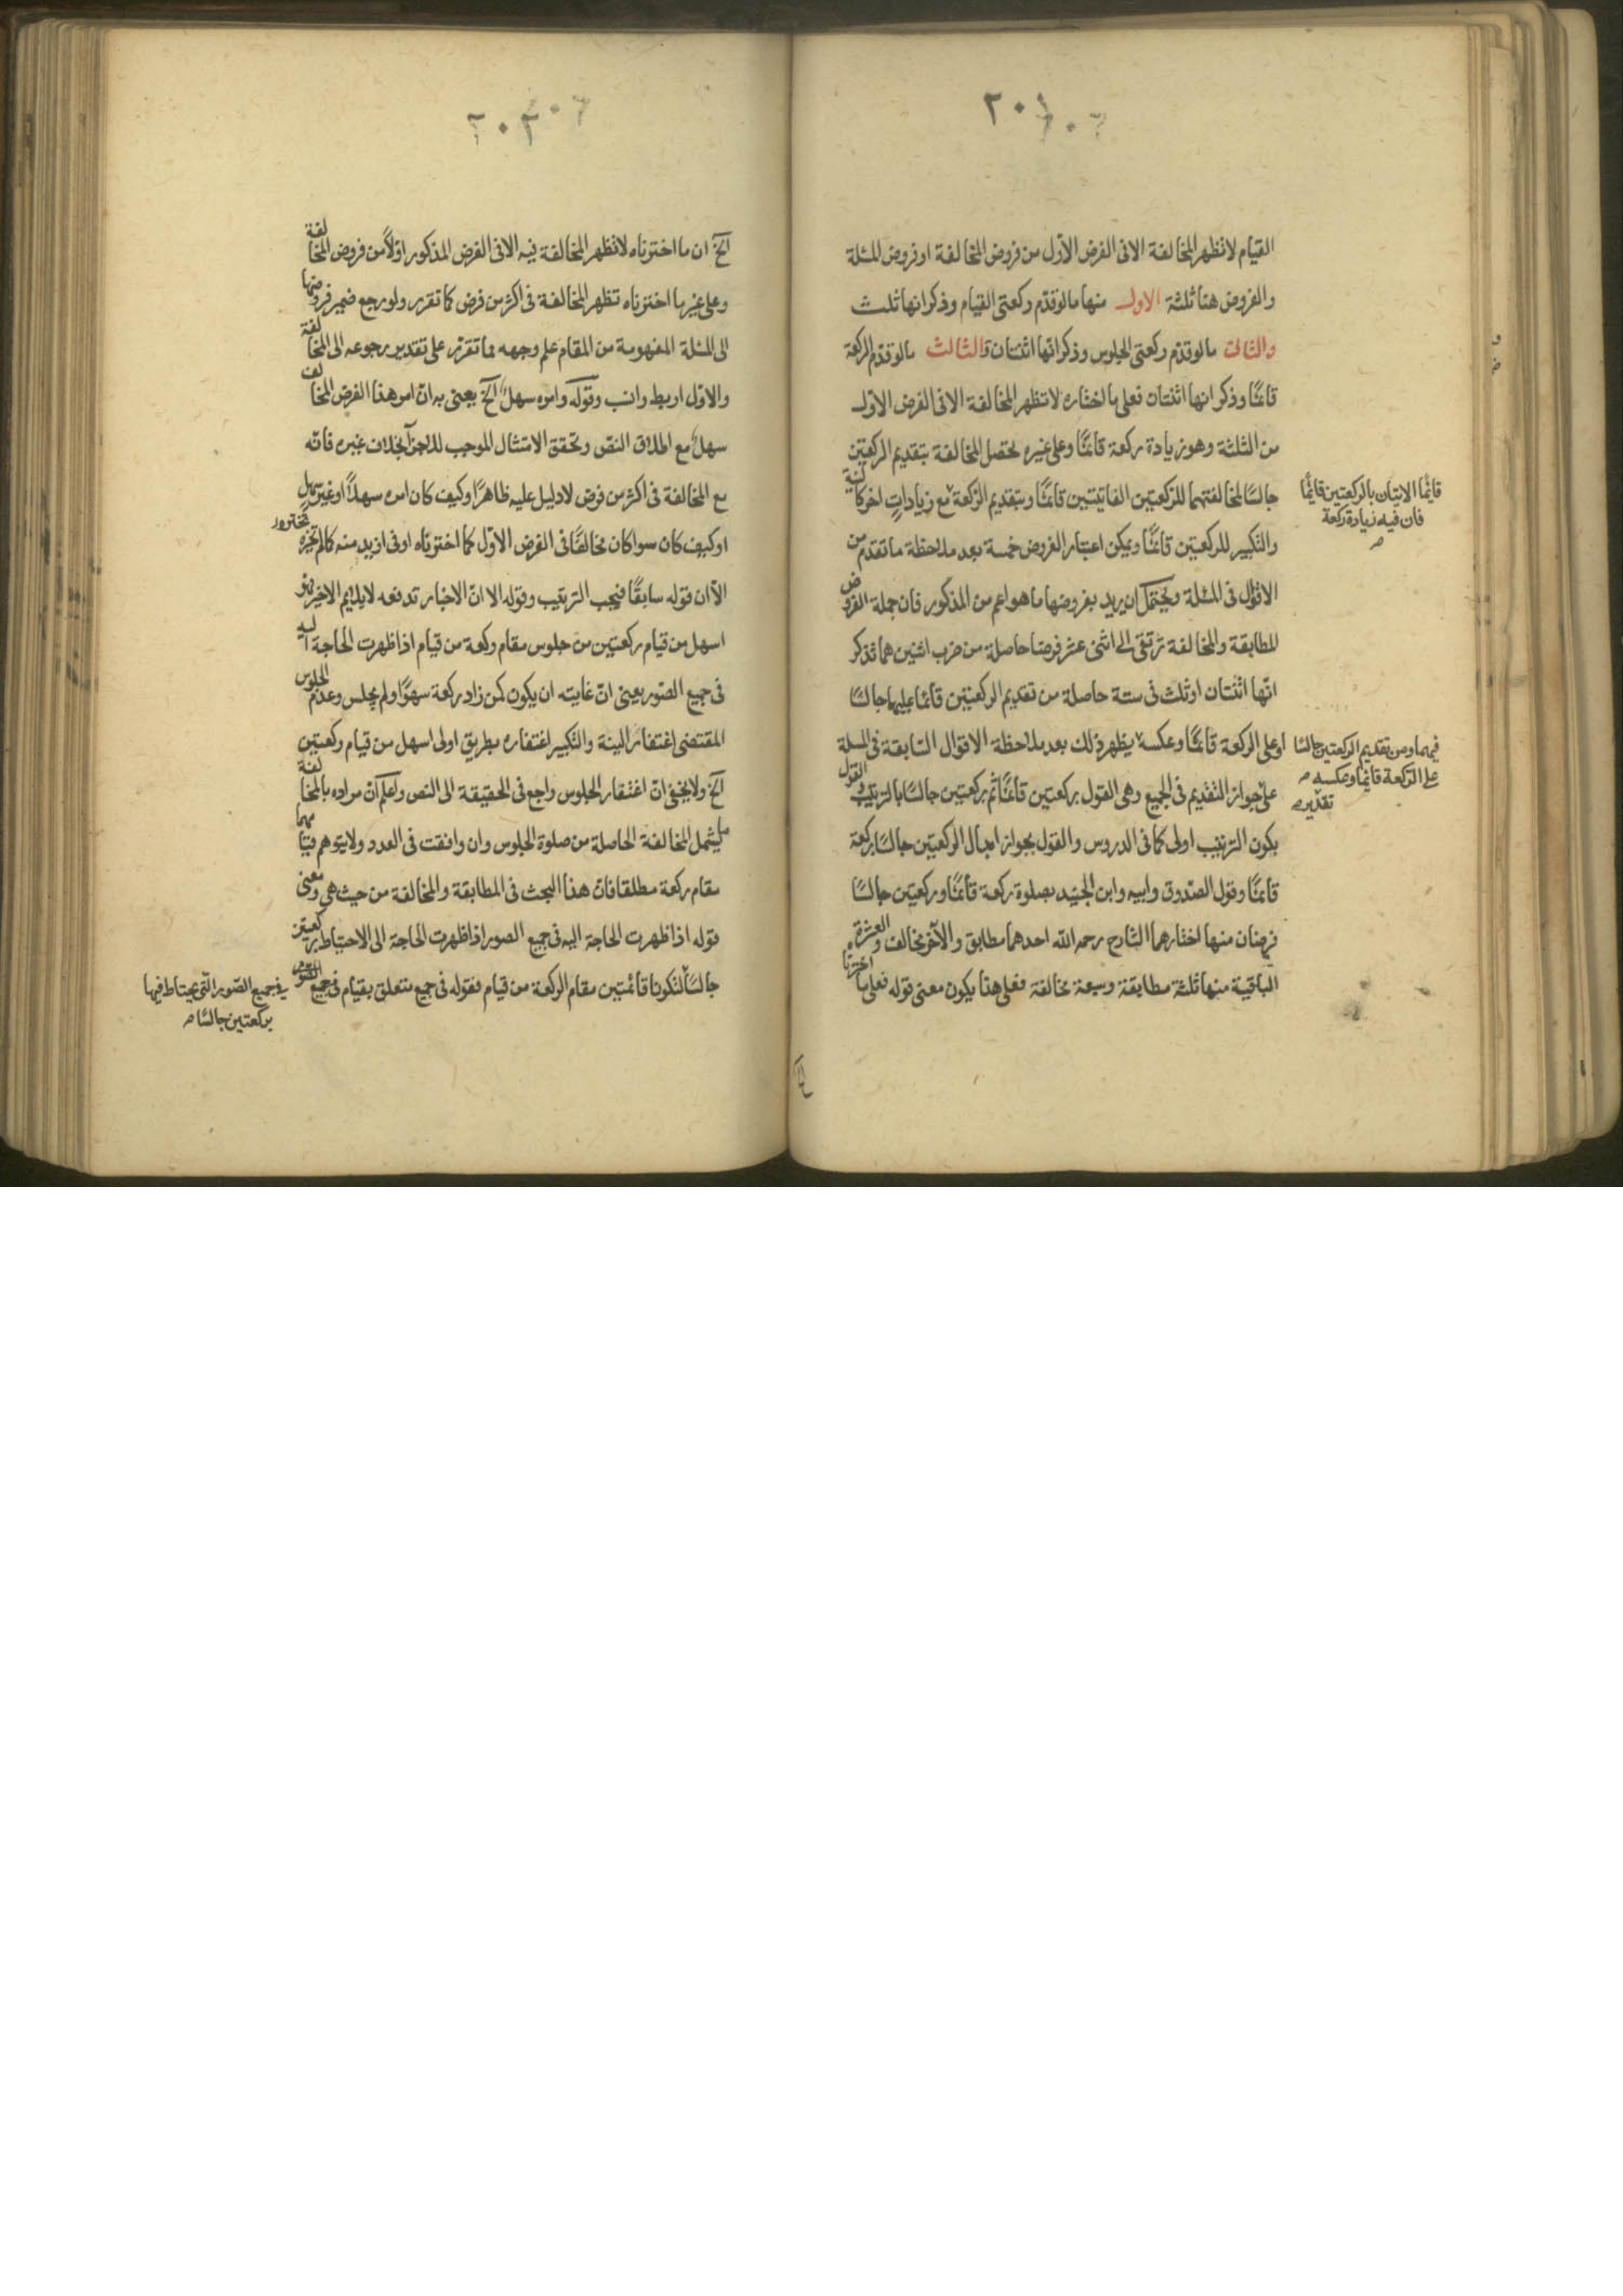 ٢٠١
القيام لا تظهر المخالفة الا فى الفرض الاوّل من فروض المخالفة او فروض المسئلة
والفروض هنا ثلثة الاول منها ما لو قدّم ركعتى القيام وذكر انها ثلث
والثانى ما لو قدّم ركعتى الجلوس وذكر انها اثنتان والثالث ما لو قدّم الركعة
قائمًا وذكر انها اثنتان فعلى ما اختاره لا تظهر المخالفة الا فى الفرض الاول
من الثلثة وهو زيادة ركعة قائمًا وعلى غيره تحصل المخالفة بتقديم الركعتين
جالسًا لمخالفتهما للركعتين الفايتتين قائمًا وبتقديم الركعة مع زيادات اخر كالنية
والتكبير للركعتين قائمًا ويمكن اعتبار الفروض خمسة بعد ملاحظة ما تقدم من
الاقوال فى المسئلة ويحتمل ان يريد بفروضها ما هو اعم من المذكور فان جملة الفروض
للمطابقة والمخالفة ترتقى الى اثنى عشر فرضا حاصلة من ضرب اثنين هما تذكر
انّها اثنتان او ثلث فى ستة حاصلة من تقديم الركعتين قائما عليهما جالسًا
او على الركعة قائمًا وعكسه يظهر ذلك بعد ملاحظة الاقوال السّابقة فى المسئلة
على جواز التقديم فى الجميع وهى القول بركعتين قائمًا ثم بركعتين جالسًا بالترتيب والقول
بكون الترتيب اولى كما فى الدروس والقول بجواز ابدال الركعتين جالسًا بركعة
قائمًا وقول الصّدوق وابيه وابن الجنيد بصلوة ركعة قائمًا وركعتين جالسًا
فرضان منها اختارهما الشارح رحمه الله احدهما مطابق والآخر مخالف والعشرة
الباقية منها ثلثة مطابقة وسبعة مخالفة فعلى هذا يكون معنى قوله فعلى ما اخترناه
قائمًا الاتيان بالركعتين قائمًا
فان فيه زيادة ركعة
فيهما ومن تقديم الركعتين جالسًا
على الركعة قائمًا وعكسه
تقديره
الخ
٢٠٢
الخ ان ما اخترناه لا تظهر المخالفة فيه الا فى الفرض المذكور اوّلًا من فروض المخالفة
وعلى غير ما اخترناه تظهر المخالفة فى اكثر من فرض كما تقرر ولو رجع ضمير فروضها
الى المسئلة المفهومة من المقام علم وجهه مما تقرر على تقدير رجوعه الى المخالفة
والاوّل اربط وانسب وقوله وامره سهل الخ يعنى به انّ امر هذا الفرض المخالف
سهل مع اطلاق النصّ وتحقق الامتثال الموجب للاجزآ بخلاف غيره فانّه
مع المخالفة فى اكثر من فرض لا دليل عليه ظاهرًا وكيف كان امره سهلًا او غير سهل
او كيف كان سوا كان مخالفًا فى الفرض الاوّل كما اخترناه او فى ازيد منه كالم نختره
الّا ان قوله سابقًا فيجب الترتيب وقوله الا انّ الاخبار تدفعه لا يلايم الاخير
اسهل من قيام ركعتين من جلوس مقام ركعة من قيام اذا ظهرت الحاجة اليه
فى جميع الصّور يعنى انّ غايته ان يكون كمن زاد ركعة سهوًا ولم يجلس وعدم الجلوس
المقتضى اغتفار النية والتكبير اغتفاره بطريق اولى اسهل من قيام ركعتين
الخ ولا يخفى انّ اغتفار الجلوس راجع فى الحقيقة الى النص واعلم انّ مراده بالمخالفة
ما يشمل المخالفة الحاصلة من صلوة الجلوس وان وافقت فى العدد ولا يتوهم قيامهما
مقام ركعة مطلقا فانّ هذا البحث فى المطابقة والمخالفة من حيث هى ومعنى
قوله اذا ظهرت الحاجة اليه فى جميع الصور اذا ظهرت الحاجة الى الاحتياط بركعتين
جالسًا لتكونا قائمتين مقام الركعة من قيام فقوله فى جميع متعلق بقيام فى جميع الصّور
فى جميع الصّور الّتى يحتاط فيها
بركعتين جالسًا